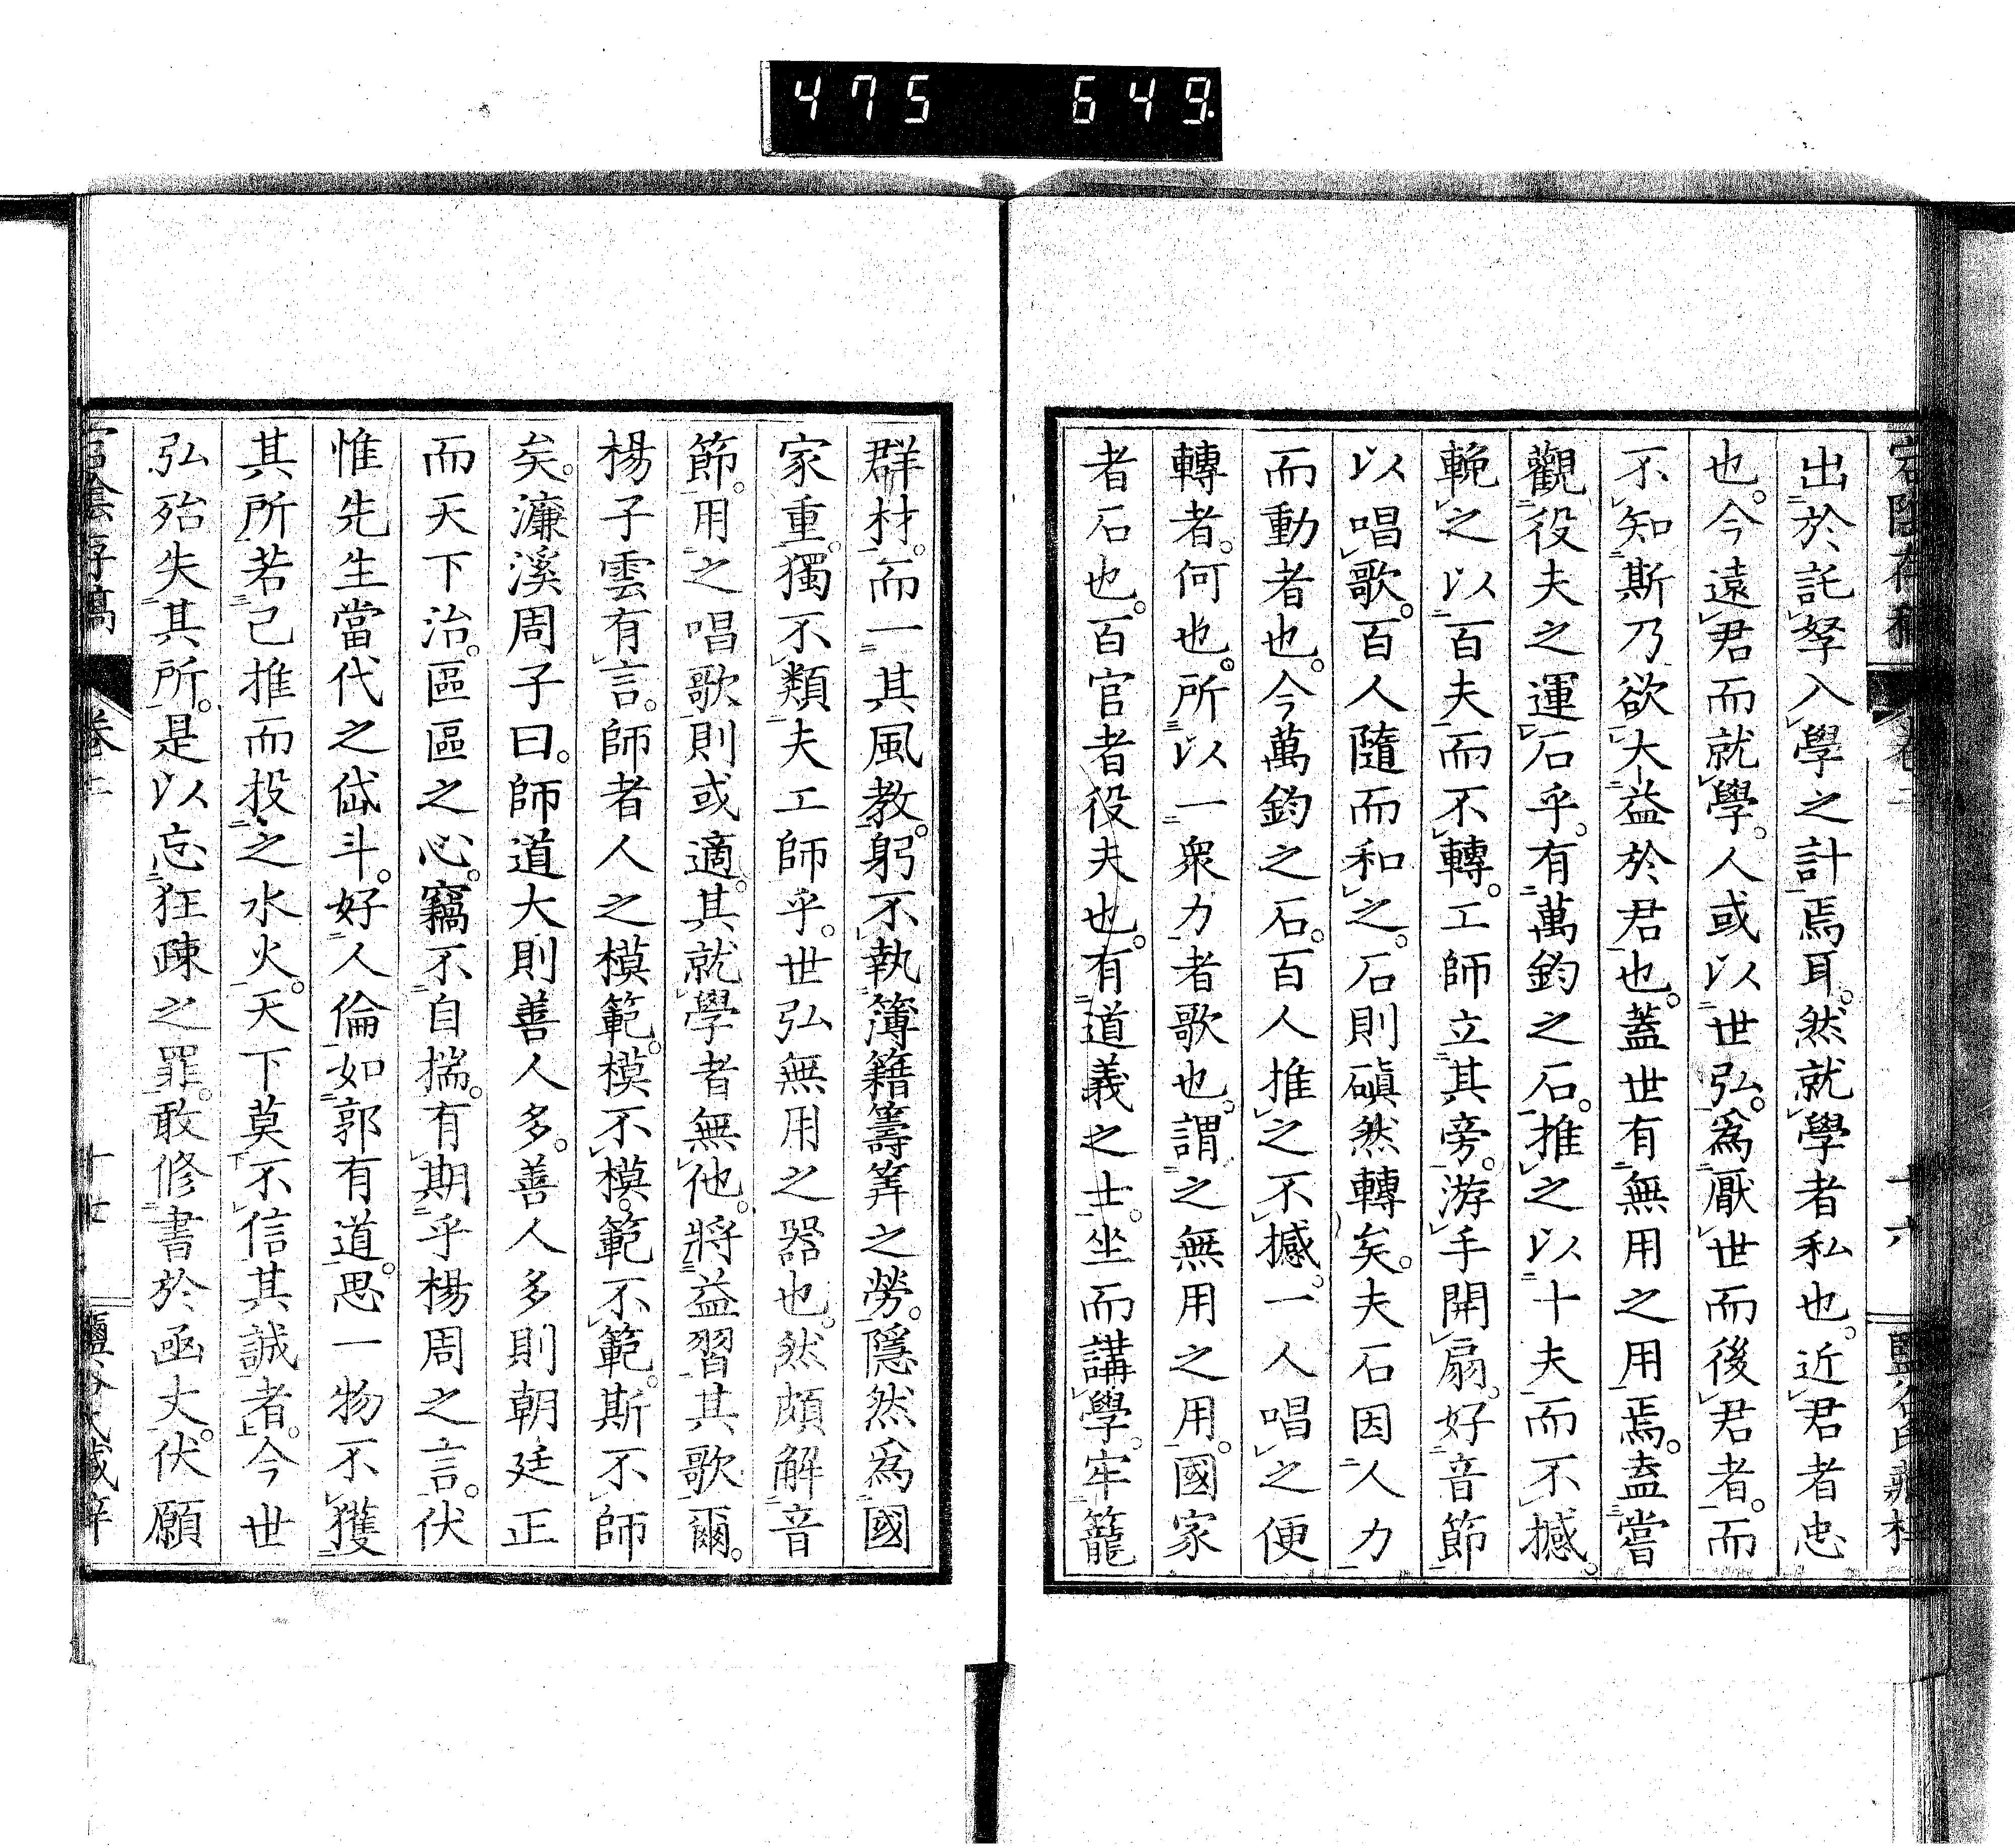 475 649
出於託孥入學之計焉耳。然就學者私也。近君者忠
也。今遠君而就學。人或以世弘。爲厭世而後君者。而
不知斯乃欲大益於君也。蓋世有無用之用焉。盍嘗
觀役夫之運石乎。有萬鈞之石。推之以十夫而不撼。
輓之以百夫而不轉。工師立其旁。游手開扇。好音節
以唱歌。百人隨而和之。石則磌然轉矣。夫石因人力
而動者也。今萬鈞之石。百人推之不撼。一人唱之便
轉者。何也。所以一衆力者歌也。謂之無用之用。國家
者石也。百官者役夫也。有道義之士。坐而講學。牢籠
群材。而一其風教。躬不執簿籍籌筭之勞。隱然爲國
家重。獨不類夫工師乎。世弘無用之器也。然頗解音
節。用之唱歌則或適。其就學者無他。將益習其歌爾。
楊子雲有言。師者人之模範。模不模。範不範。斯不師
矣。濂溪周子曰。師道大則善人多。善人多則朝廷正
而天下治。區區之心。竊不自揣。有期乎楊周之言。伏
惟先生當代之岱斗。好人倫如郭有道。思一物不獲
其所若己推而投之水火。天下莫不信其誠者。今世
弘殆失其所。是以忘狂疎之罪。敢修書於函丈。伏願
卷二